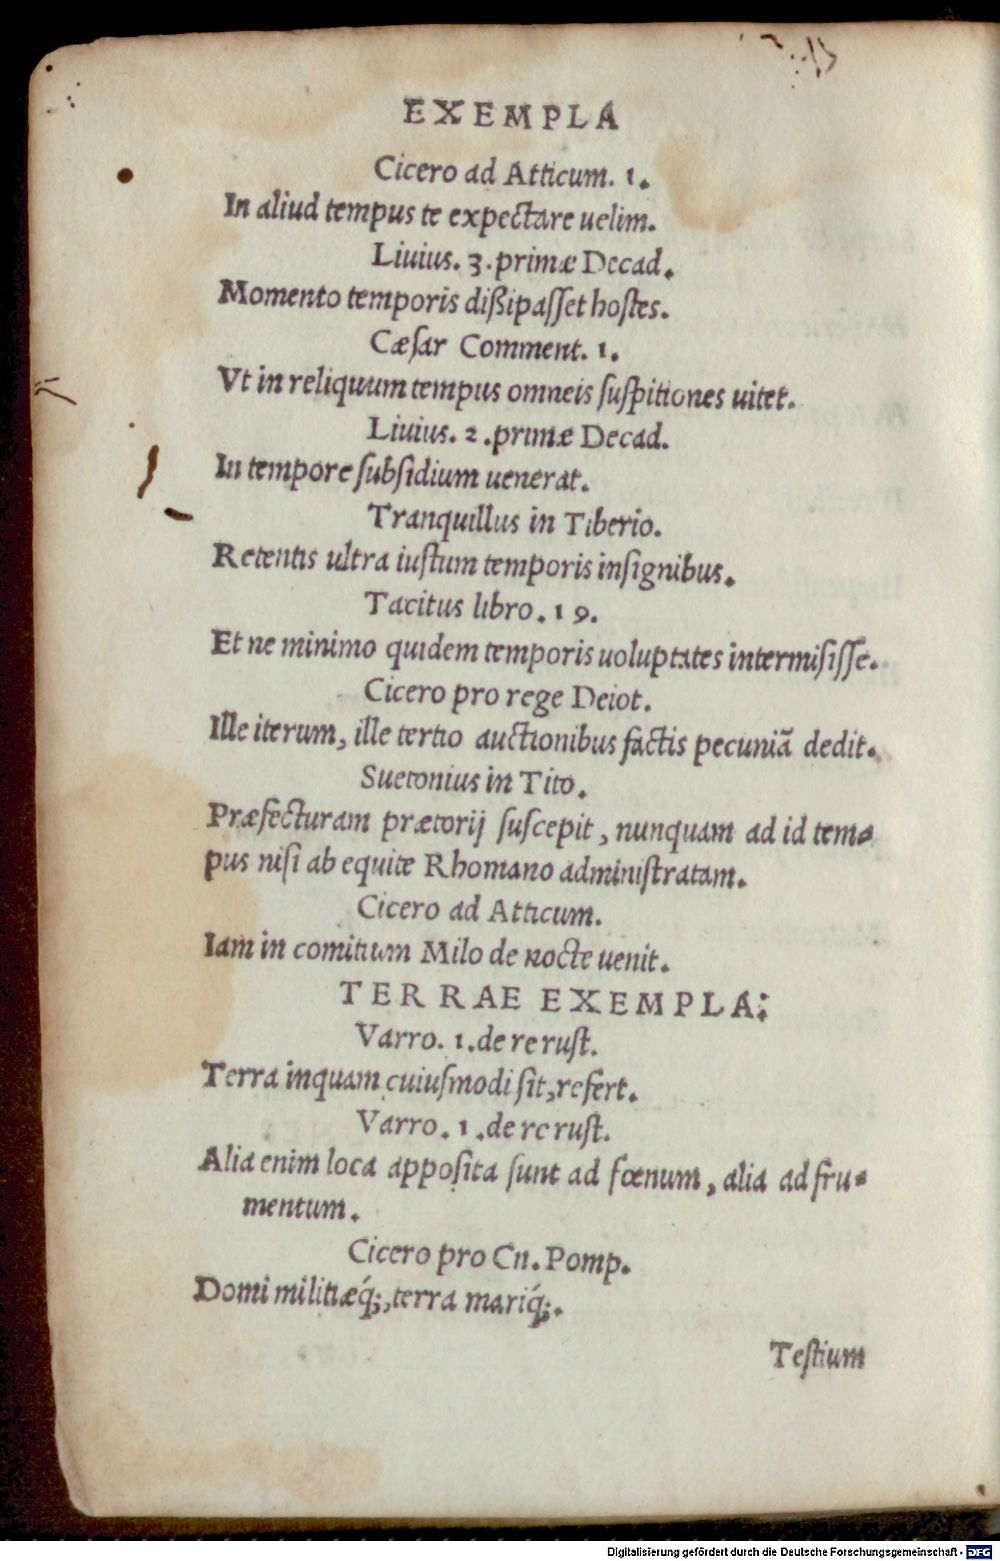 EXEMPLA
Cicero ad Atticum. 1.
In aliud tempus te expectare uelim.
Liuius. 3. primæ Decad.
Momento temporis dißipaſſet hoſtes.
Cæſar Comment. 1.
Vt in reliquum tempus omneis ſuſpitiones uitet.
Liuius. 2. primæ Decad.
In tempore ſubſidium uenerat.
Tranquillus in Tiberio.
Retentis ultra iuſtum temporis inſignibus.
Tacitus libro. 19.
Et ne minimo quidem temporis uoluptates intermiſiſſe.
Cicero pro rege Deiot.
Ille iterum, ille tertio auctionibus factis pecuniã dedit.
Suetonius in Tito.
Præfecturam prætorij ſuſcepit, nunquam ad id tem-
pus niſi ab equite Rhomano adminiſtratam.
Cicero ad Atticum.
Iam in comitium Milo de nocte uenit.
TERRAE EXEMPLA:
Varro. 1. de re ruſt.
Terra inquam cuiuſmodi ſit, refert.
Varro. 1. de re ruſt.
Alia enim loca appoſita ſunt ad fœnum, alia ad fru-
mentum.
Cicero pro Cn. Pomp.
Domi militiæq́;, terra mariq́;.
Teſtium
Digitalisierung gefördert durch die Deutsche Forschungsgemeinschaft - DFG